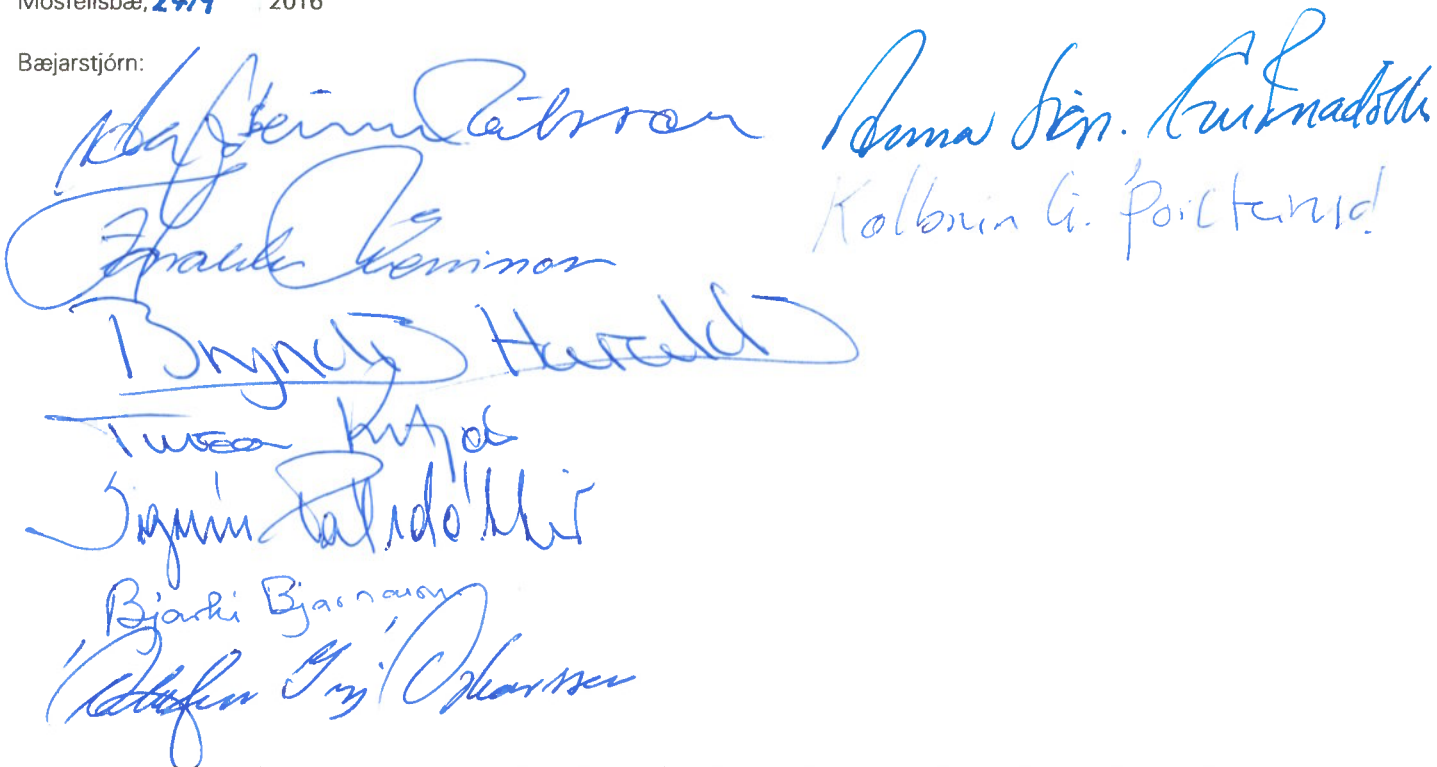 Mosfellsbæ, 27/4 2016
Bæjarstjórn:
Hafsteinn Pálsson
Anna Sigr. Guðnadóttir
Haraldur Sverrisson
Kolbrún G. Þorsteinsd
Bryndís Harald
Theodór Kristjáns
Sigrún Pálsdóttir
Bjarki Bjarnason
Ólafur Ingi Óskarsson